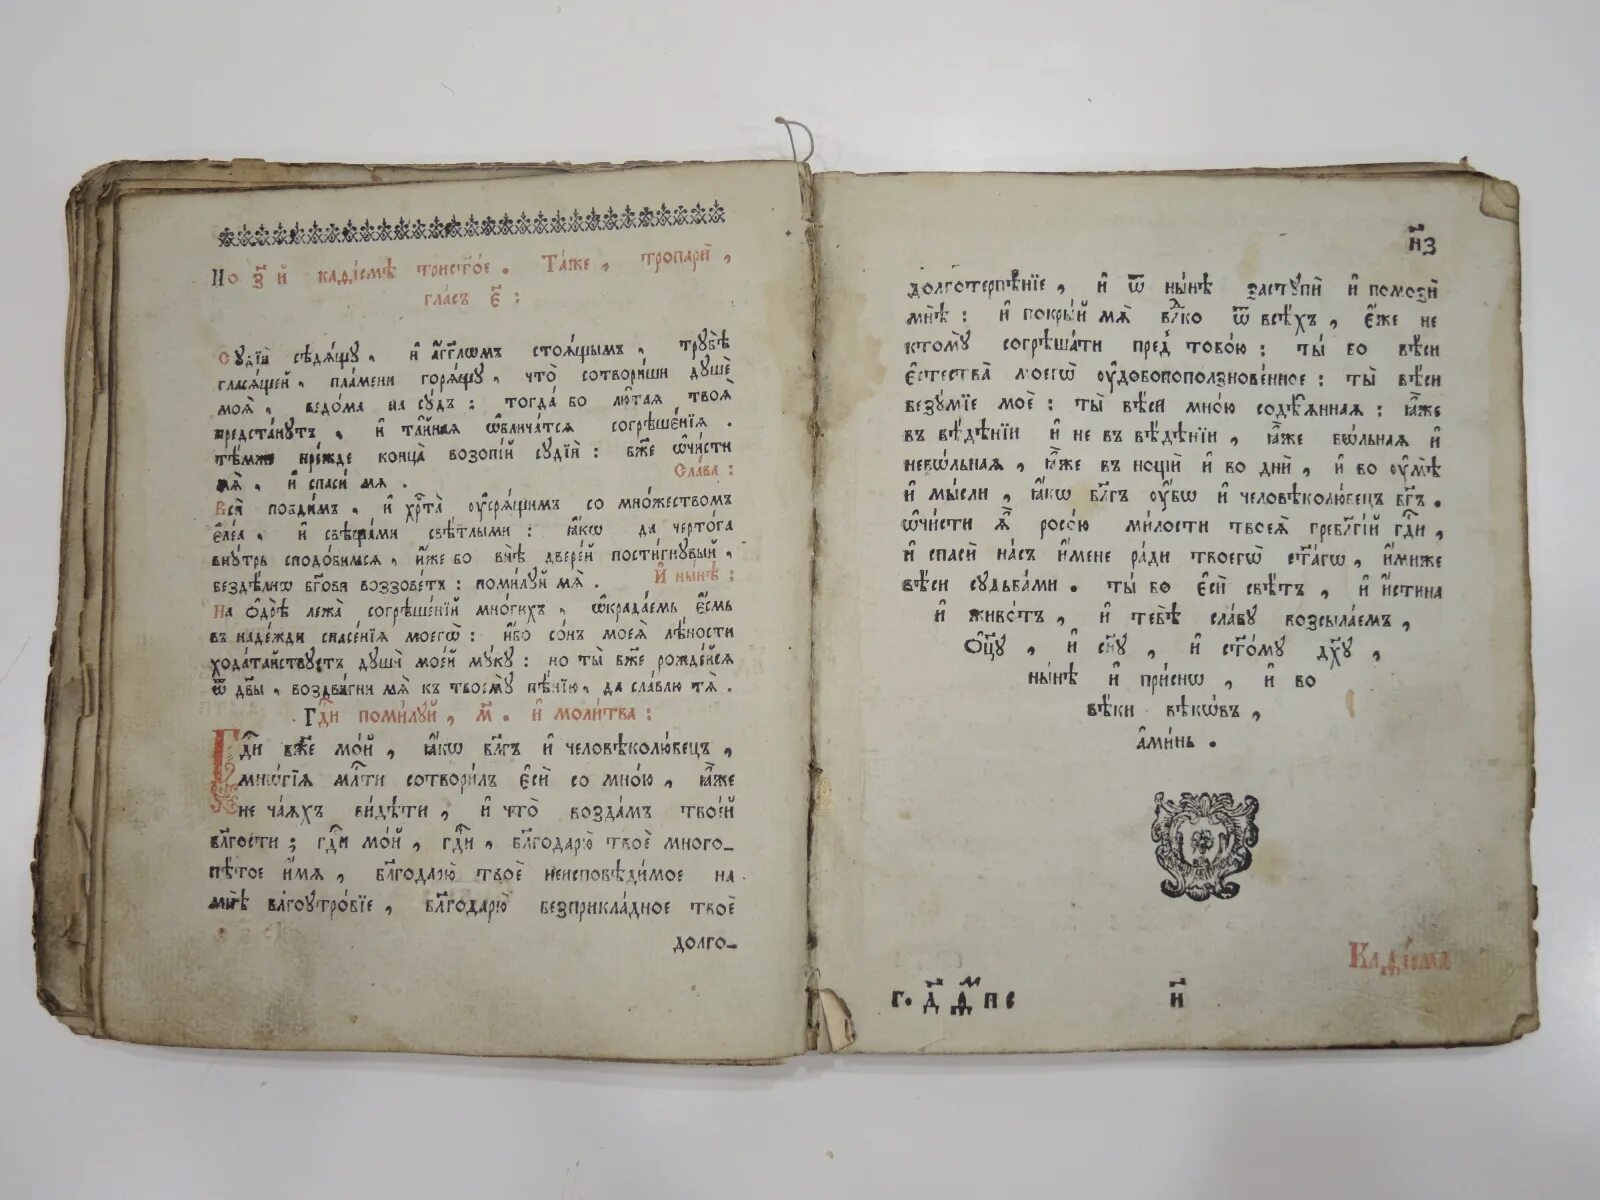 По з҃ й каѳі́смѣ трист҃о́е. Та́же, тропарѝ,
гла́съ є҃:
Судїѝ сѣдѧ́щу, и҆ а҆́гг҃лѡмъ стоѧ́щымъ, трубѣ̀
гласѧ́щей, пла́мени горѧ́щу, что̀ сотвори́ши душѐ
моѧ̀, ведо́ма на су́дъ: тогда́ бо лю҆́таѧ твоѧ̀
предста́нутъ, и҆ та҆́йнаѧ ѡ҆блича́тсѧ согрѣше́нїѧ.
тѣ́мже пре́жде конца̀ возопі́й судїѝ: бж҃е ѡ҆чи́сти
мѧ̀, и҆ спаси́ мѧ. Сла́ва:
Всѝ побди́мъ, и҆ хр҃та̀ ѹ҆срѧ́щимъ со мно́жествомъ
є҆ле́а, и҆ свѣща́ми свѣ́тлыми: ꙗ҆́кѡ да черто́га
вну́трь сподо́бимсѧ, и҆́же бо внѣ̀ двере́й пости́гнувый,
безде́лнѡ бг҃ови воззове́тъ: поми́луй мѧ̀. И҆ ны́нѣ:
На ѻ҆дрѣ̀ лежа̀ согрѣше́нїй мно́гихъ, ѡ҆кра́даемь є҆́смь
въ наде́жди спасе́нїѧ моегѡ̀: и҆́бо со́нъ моеѧ̀ лѣ́ности
хода́тайствуетъ душѝ мое́й му́ку: но ты̀ бж҃е рожде́йсѧ
ѿ дв҃ы, воздви́гни мѧ̀ къ твоему̀ пѣ́нїю, да сла́влю тѧ̀.
Гд҇и поми́луй, м҃. и҆ моли́тва:
Гд҇и бж҃е мо́й, ꙗ҆́кѡ бл҃гъ и҆ человѣколю́бецъ,
мнѡ́гїѧ мл҇ти сотвори́лъ є҆сѝ со мно́ю, ꙗ҆́же
не ча́ѧхъ ви́дѣти, и҆ что̀ возда́мъ твое́й
бл҃гости; гд҇и мо́й, гд҇и, бл҃годарю̀ твоѐ много-
пѣ́тое и҆́мѧ, бл҃годарю̀ твоѐ неисповѣди́мое на
мнѣ̀ бл҃гоутро́бїе, бл҃годарю̀ безприкла́дное твоѐ
долго-
н҃з
долготерпѣ́нїе, и҆ ѿ ны́нѣ заступѝ и҆ помозѝ
мнѣ̀: и҆ покры́й мѧ̀ вл҇ко ѿ всѣ́хъ, є҆́же не
ктому̀ согрѣша́ти пред̾ тобо́ю: ты́ бо вѣ́си
є҆стества̀ моегѡ̀ ѹ҆добопоползнове́нное: ты̀ вѣ́си
безу́мїе моѐ: ты̀ вѣ́си мно́ю содѣ́ѧнная: ꙗ҆́же
въ вѣ́дѣнїи и҆ не въ вѣ́дѣнїи, ꙗ҆́же вѡ́льная и҆
невѡ́льная, ꙗ҆́же въ нощѝ и҆ во днѝ, и҆ во ѹ҆мѣ̀
и҆ мы́сли, ꙗ҆́кѡ бл҃гъ ѹ҆́бѡ и҆ человѣколю́бецъ бг҃ъ.
ѡ҆чи́сти ѧ҆̀ росо́ю ми́лости твоеѧ̀ пребл҃гі́й гд҇и,
и҆ спасѝ на́съ и҆́мене ра́ди твоегѡ̀ ст҃а́гѡ, и҆́миже
вѣ́си судьба́ми. ты́ бо є҆сѝ свѣ́тъ, и҆ и҆́стина
и҆ живо́тъ, и҆ тебѣ̀ сла́ву возсыла́емъ,
ѻ҆ц҃у, и҆ сн҃у, и҆ ст҃о́му дх҃у,
ны́нѣ и҆ при́снѡ, и҆ во
вѣ́ки вѣкѡ́въ,
а҆ми́нь.
Каѳі́сма
г. д҃ ѱпе й